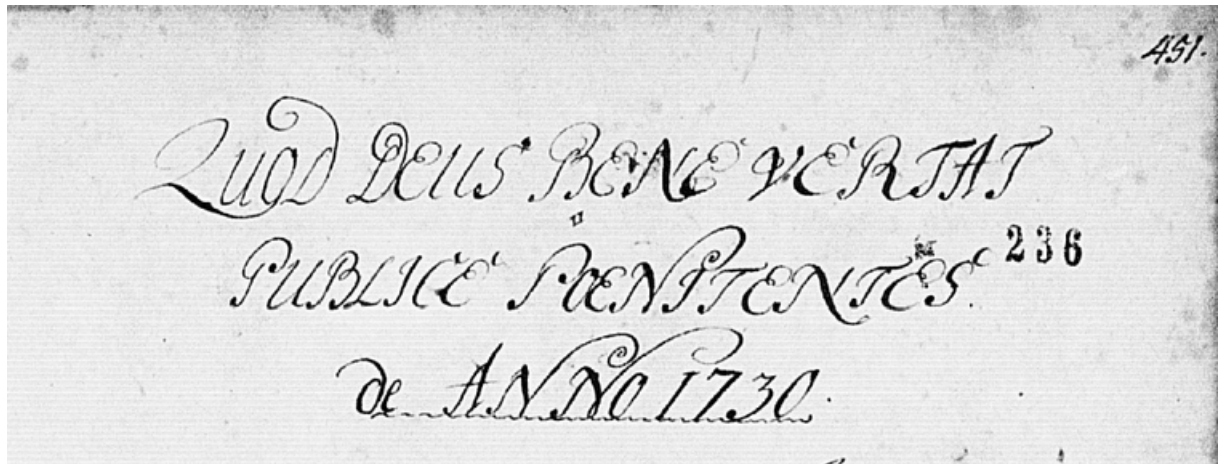 451.
QUOD DEUS BENE VERTAT
PUBLICE POENITENTES 236
de ANNO 1730.